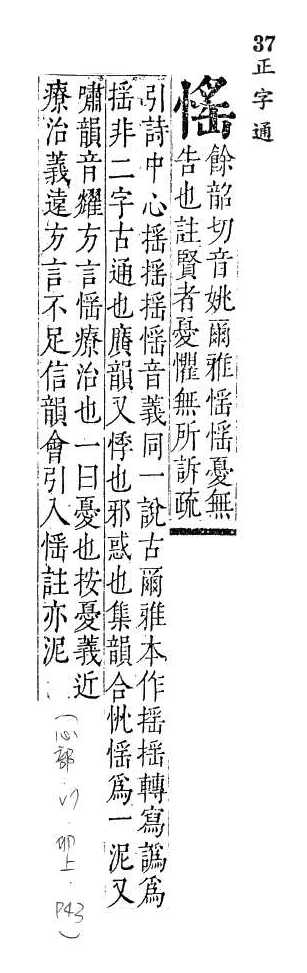 37正字通
愮
餘韶切音姚爾雅愮愮憂無
告也註賢者憂懼無所訴疏
引詩中心搖搖搖愮音義同一說古爾雅本作搖搖轉寫譌爲
搖非二字古通也廣韻又悸也邪惑也集韻合恌愮爲一泥又
嘯韻音耀方言愮療治也一曰憂也按憂義近
療治義遠方言不足信韻會引入愮註亦泥
(心部.17.卯上.P43)